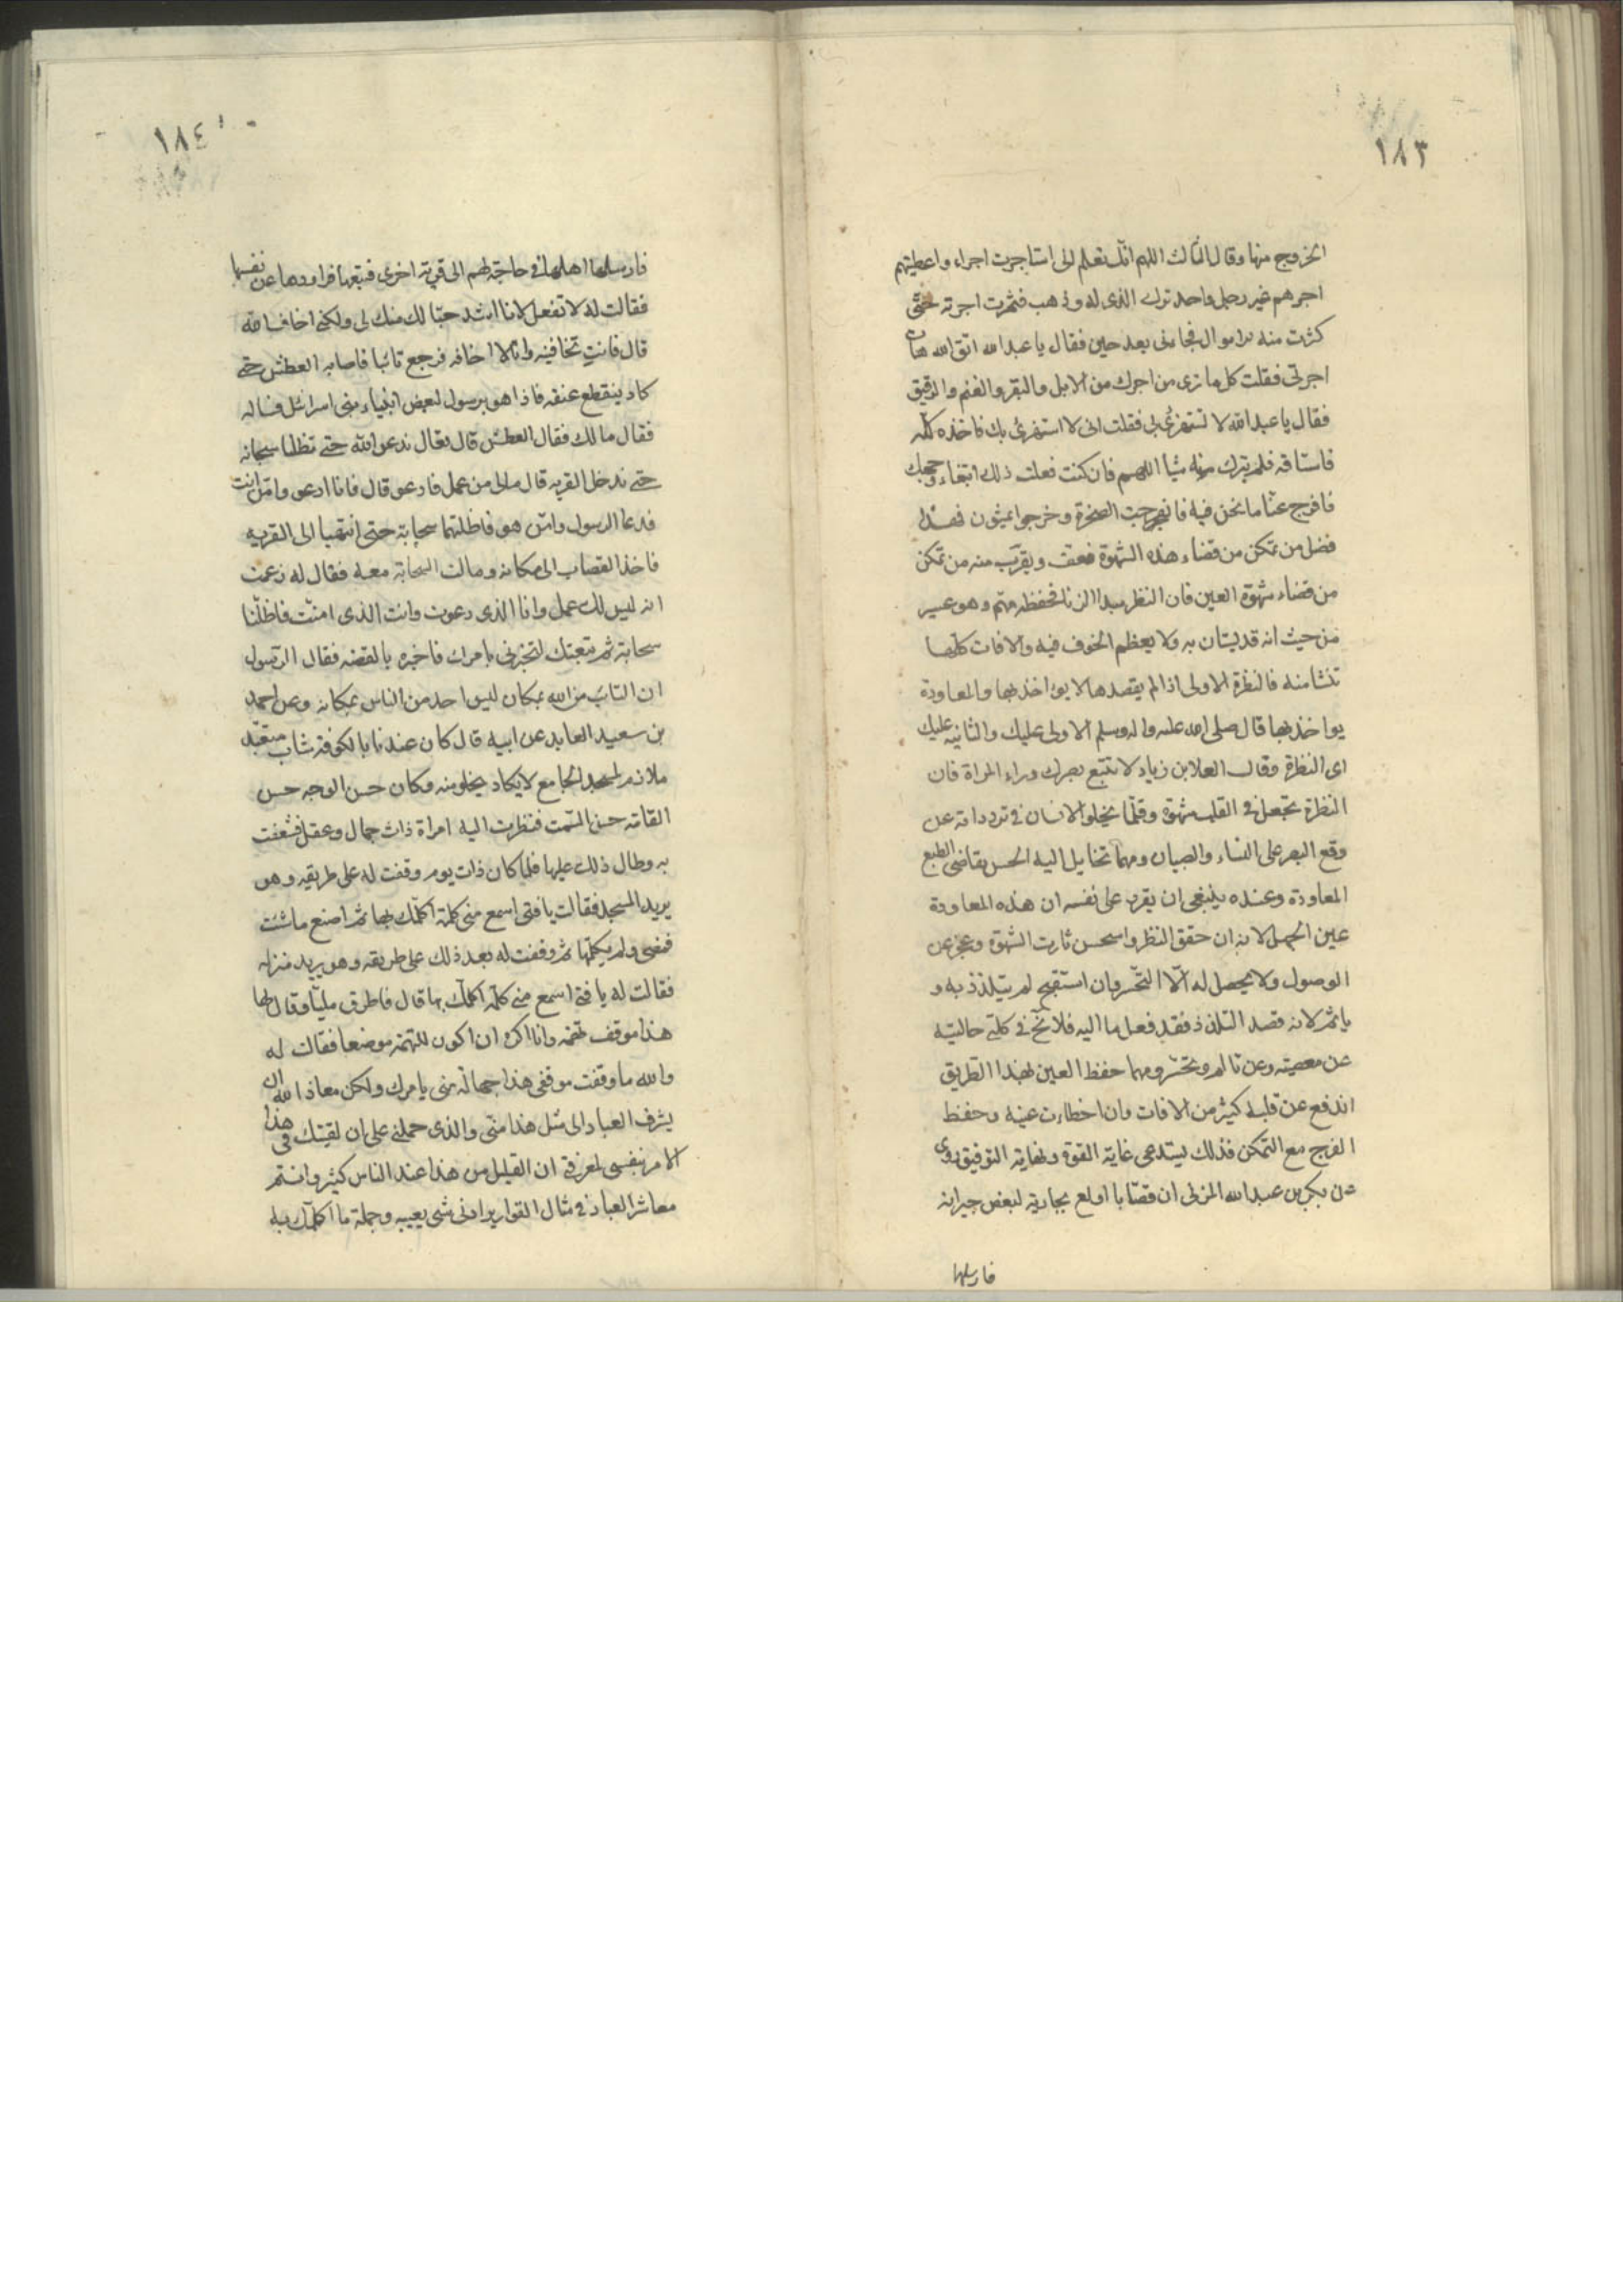 ١٨٣
الخروج منها وقال الثالث اللهم انك تعلم انى استاجرت اجراء واعطيتهم
اجرهم غير رجل واحد ترك الذى له وذهب فثمرت اجرته حتى
كثرت منه الاموال فجاءنى بعد حين فقال يا عبدالله اتق الله هات
اجرتى فقلت كل ما ترى من اجرك من الابل والبقر والغنم والرقيق
فقال يا عبدالله لا تستهزئ بى فقلت انى لا استهزئ بك فاخذه كله
فاستاقه فلم يترك منه شيا اللهم فان كنت فعلت ذلك ابتغاء وجهك
فافرج عنا ما نحن فيه فانفرجت الصخرة وخرجوا يمشون فهذا
فضل من تمكن من قضاء هذه الشهوة فعف ويقرب منه من تمكن
من قضاء شهوة العين فان النظر مبدا الزنا فحفظه مهم وهو عسير
من حيث انه قد يستهان به ولا يعظم الخوف فيه والافات كلها
تنشا منه فالنظرة الاولى اذا لم يقصدها لا يواخذ بها والمعاودة
يواخذ بها قال صلى الله عليه واله وسلم الاولى عليك والثانيه عليك
اى النظرة وقال العلا بن زياد لا تتبع بصرك وراء المراة فان
النظرة تجعل فى القلب شهوة وقلما يخلو الانسان فى تردداته عن
وقع البصر على النساء والصبيان ومهما تخايل اليه الحسن تقاضى الطبع
المعاودة وعنده ينبغى ان يقرر على نفسه ان هذه المعاودة
عين الجهل لانه ان حقق النظر واستحسن ثارت الشهوة وعجز عن
الوصول ولا يحصل له الا التحسر وان استقبح لم يتلذذ به و
ياثم لانه قصد التلذذ فقد فعل ما اليه فلا نخ فى كلتى حالتيه
عن معصيته وعن تالم وتحسر ومهما حفظ العين بهذا الطريق
اندفع عن قلبه كثير من الافات وان اخطات عينه وحفظ
الفرج مع التمكن فذلك يستدعى غاية القوة ونهاية التوفيق روى
عن بكر بن عبدالله المزنى ان قصابا اولع بجارية لبعض جيرانه
فارسلها
١٨٤
فارسلها اهلها فى حاجة لهم الى قرية اخرى فتبعها فراودها عن نفسها
فقالت له لا تفعل لانا اشد حبا لك منك لى ولكنى اخاف الله
قال فانت تخافينه وانا لا اخافه فرجع تائبا فاصابه العطش حتى
كاد ينقطع عنقه فاذا هو برسول لبعض انبياء بنى اسرائل فساله
فقال مالك فقال العطش قال تعال ندعو الله حتى تظلنا سحابه
حتى ندخل القريه قال مالى من عمل فادعو قال فانا ادعو وامن انت
فدعا الرسول وامن هو فاظلتهما سحابة حتى انتهيا الى القريه
فاخذ القصاب الى مكانه ومالت السحابة معه فقال له زعمت
انه ليس لك عمل وانا الذى دعوت وانت الذى امنت فاظلتنا
سحابة ثم تبعتك لتخبرنى بامرك فاخبره بالقصه فقال الرسول
ان التائب من الله بمكان ليس احد من الناس بمكانه وعن احمد
بن سعيد العابد عن ابيه قال كان عندنا بالكوفة شاب متعبد
ملازم لمسجد الجامع لا يكاد يخلو منه وكان حسن الوجه حسن
القامة حسن السمت فنظرت اليه امراة ذات جمال وعقل فشغفت
به وطال ذلك عليها فلما كان ذات يوم وقفت له على طريقه وهو
يريد المسجد فقالت يا فتى اسمع منى كلمة اكلمك بها ثم اصنع ما شئت
فمضى ولم يكلمها ثم وقفت له بعد ذلك على طريقه وهو يريد منزله
فقالت له يا فتى اسمع منى كلمة اكلمك بها قال فاطرق مليا وقال لها
هذا موقف تهمة وانا اكره ان اكون للتهمة موضعا فقالت له
والله ما وقفت موقفى هذا جهالة منى بامرك ولكن معاذ الله ان
يشرف العباد الى مثل هذا منى والذى حملنى على ان لقيتك فى هذا
الامر بنفسى لمعرفتى ان القليل من هذا عند الناس كثير وانتم
معاشر العباد فى مثال القوارير ادنى شى يعيبه وجملة ما اكلمك به